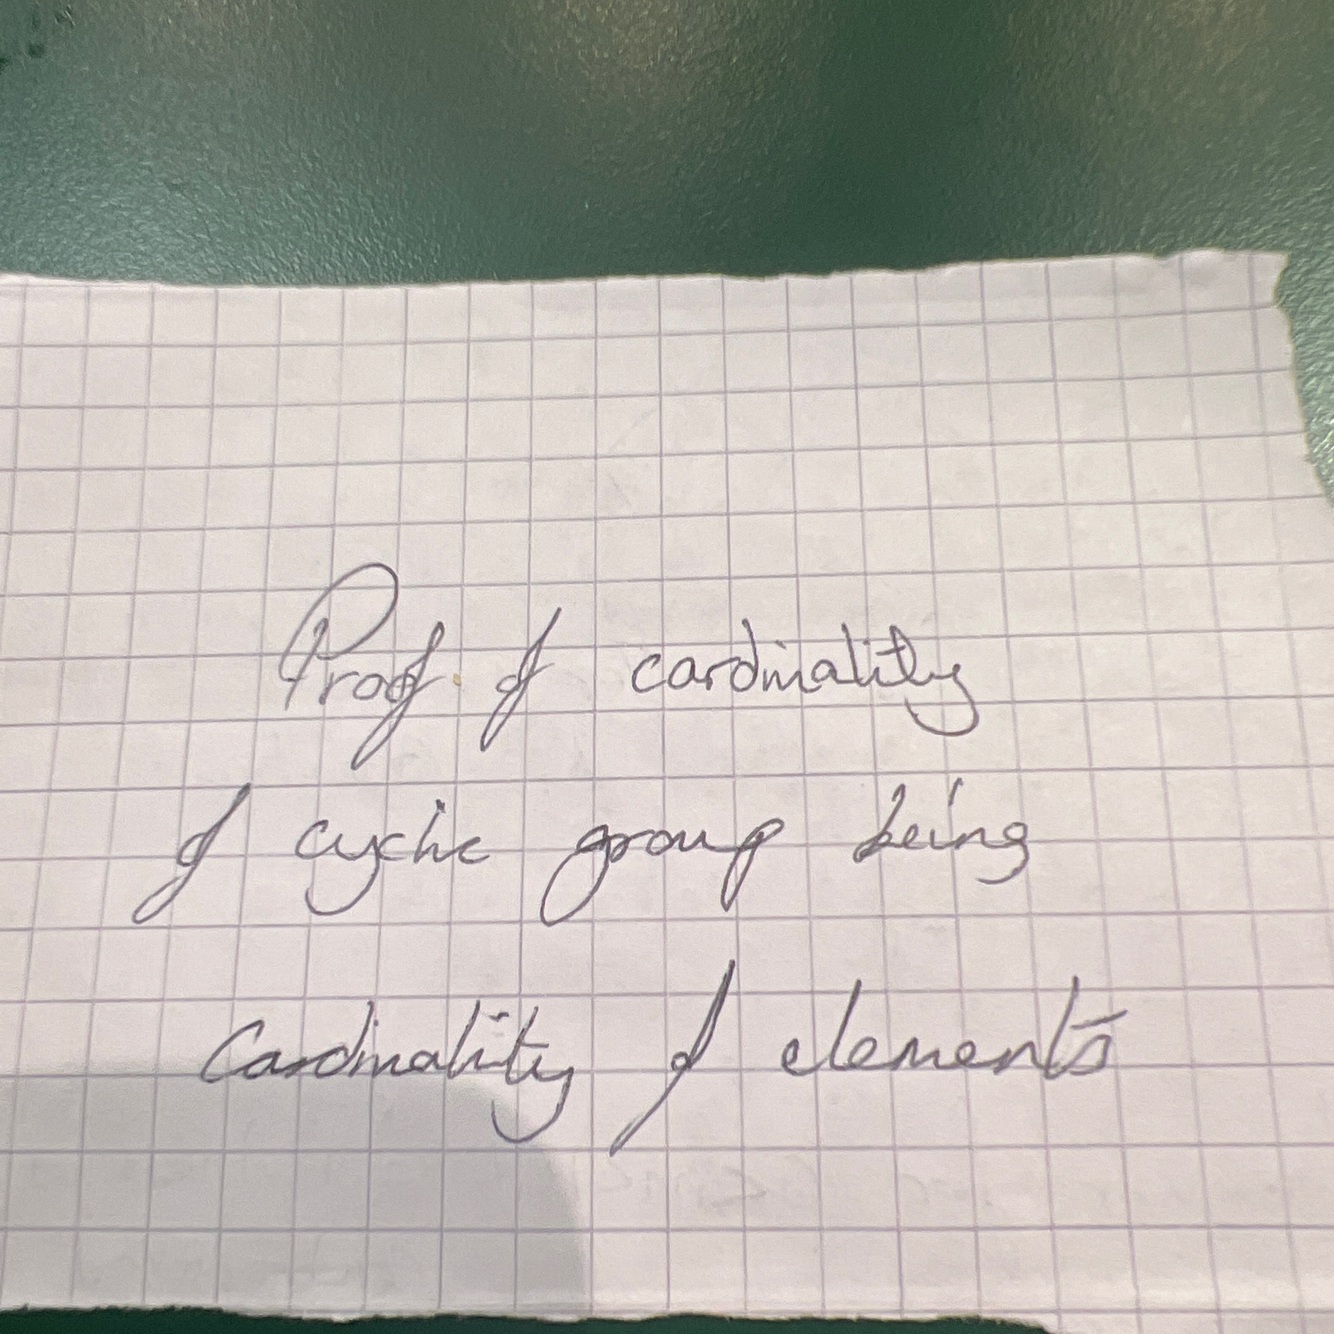 Proof of cardinality
of cyclic group being
Cardinality of elements